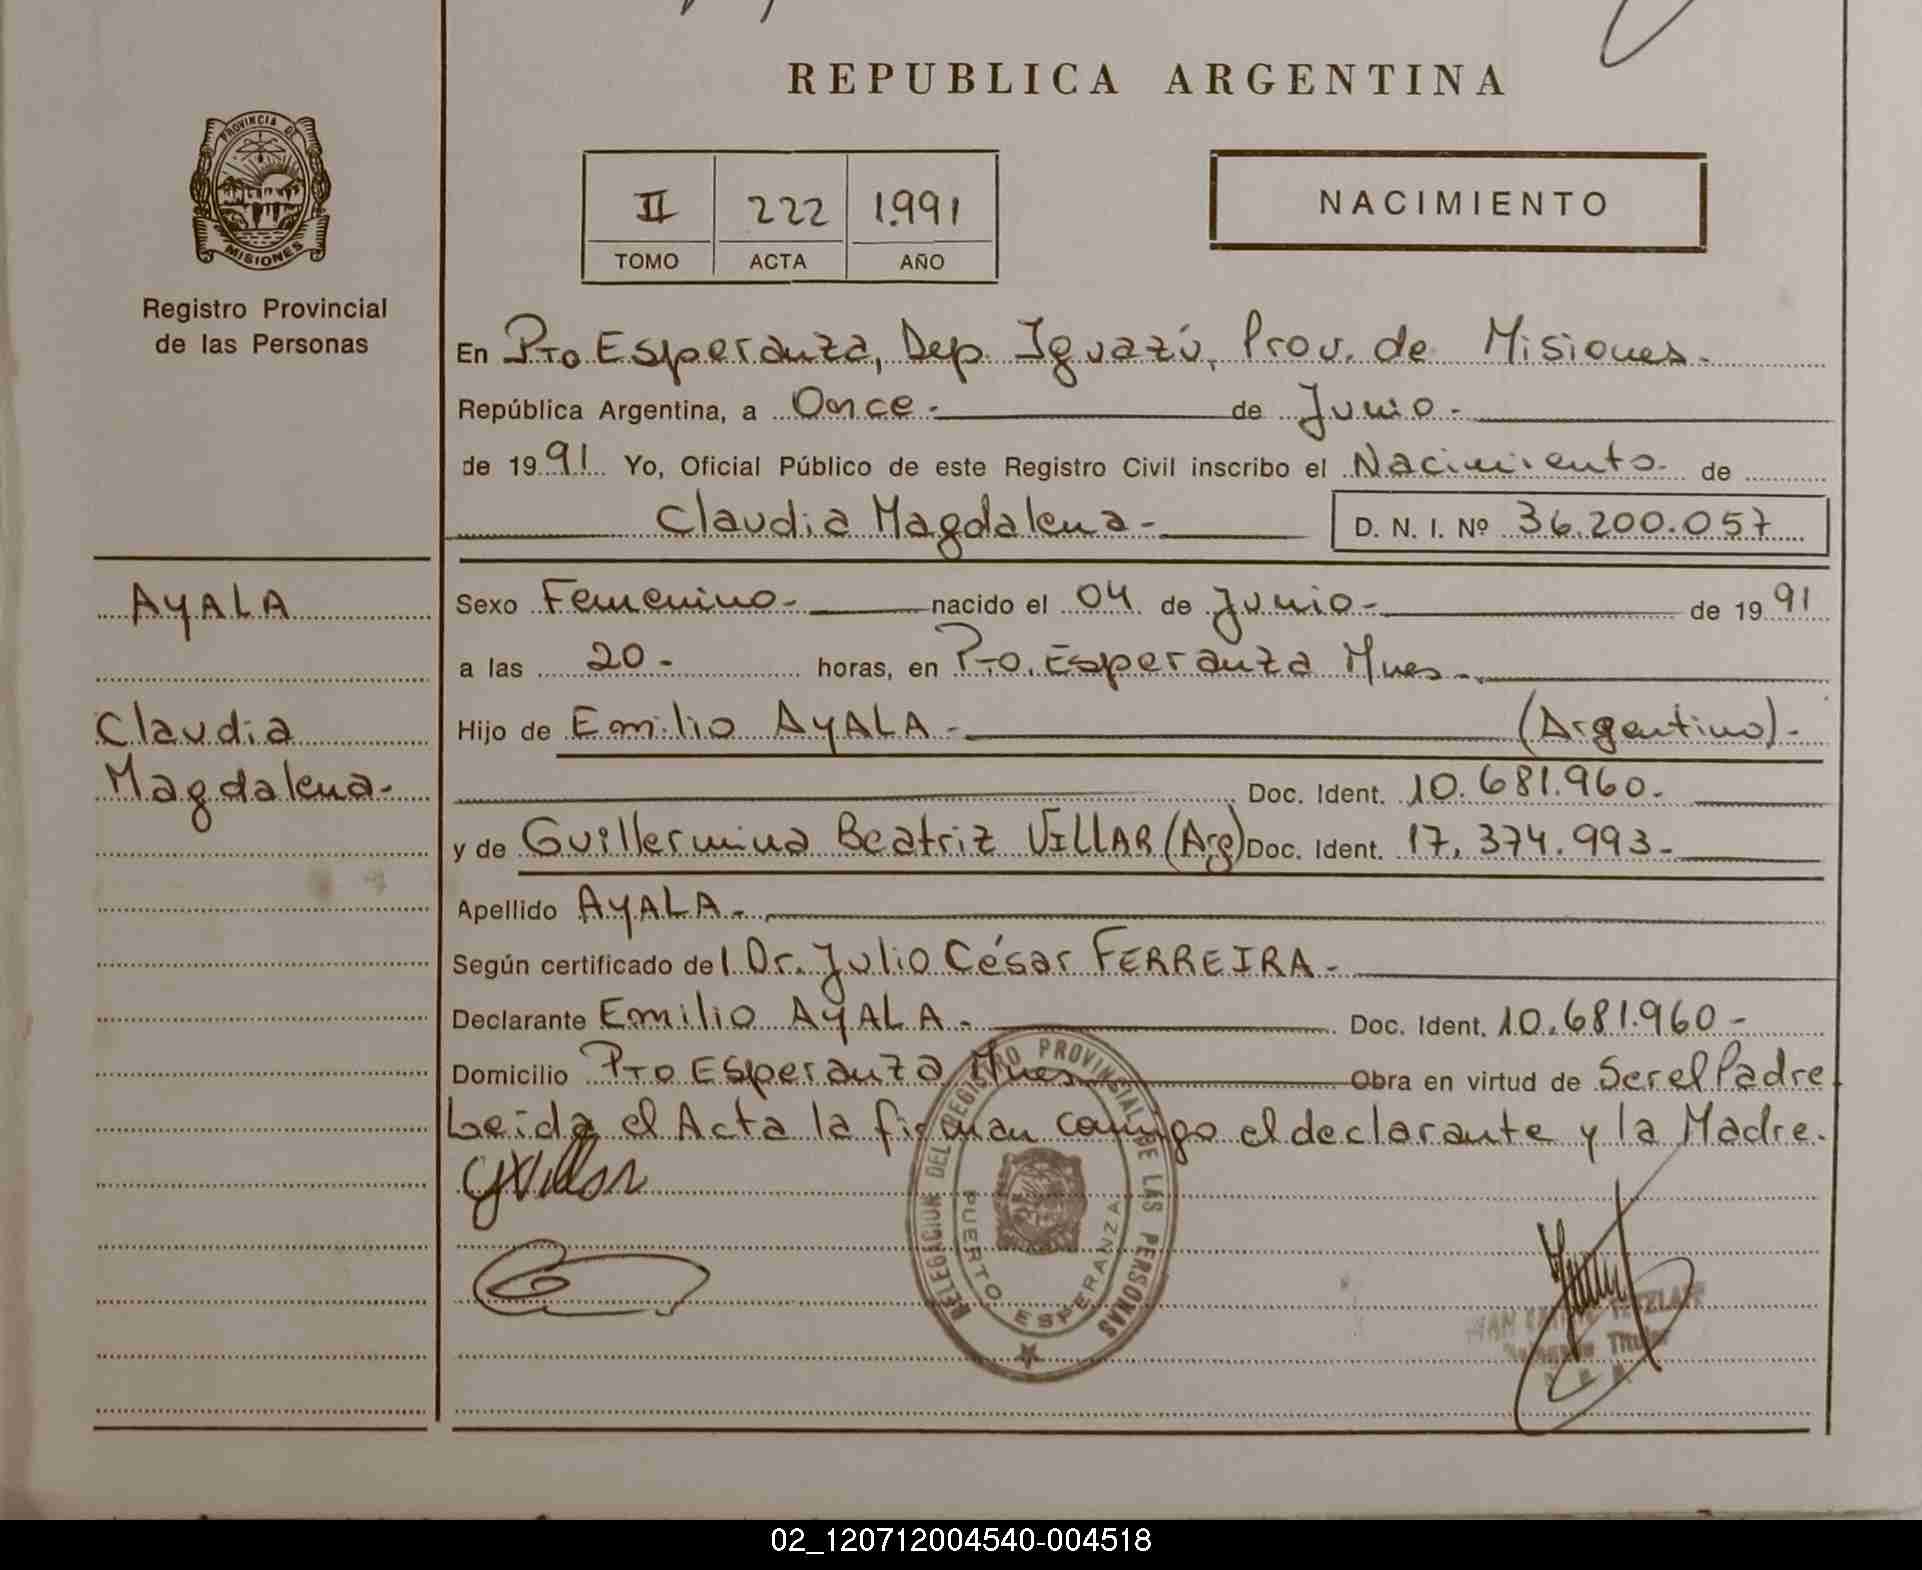 REPUBLICA ARGENTINA
PROVINCIA DE
MISIONES
Registro Provincial
de las Personas
II 222 1.991
TOMO ACTA AÑO
NACIMIENTO
En Pto Esperanza, Dep. Iguazú, Prov. de Misiones.
República Argentina, a Once.- de Junio.-
de 1991 Yo, Oficial Público de este Registro Civil inscribo el Nacimiento de
Claudia Magdalena.- D. N. I. Nº 36.200.057
AYALA
Claudia
Magdalena.-
Sexo Femenino.- nacido el 04 de Junio.- de 1991
a las 20.- horas, en Pto. Esperanza Mnes.-
Hijo de Emilio AYALA.- (Argentino).-
Doc. Ident. 10.681.960.-
y de Guillermina Beatriz VILLAR (Arg) Doc. Ident. 17.374.993.-
Apellido AYALA.-
Según certificado del Dr. Julio César FERREIRA.-
Declarante Emilio AYALA.- Doc. Ident. 10.681.960-
Domicilio Pto Esperanza Mnes Obra en virtud de Ser el Padre.
Leida el Acta la firman conmigo el declarante y la Madre.
GVillar
DELEGACION DEL REGISTRO PROVINCIAL DE LAS PERSONAS
PUERTO ESPERANZA
Titular
02_120712004540-004518